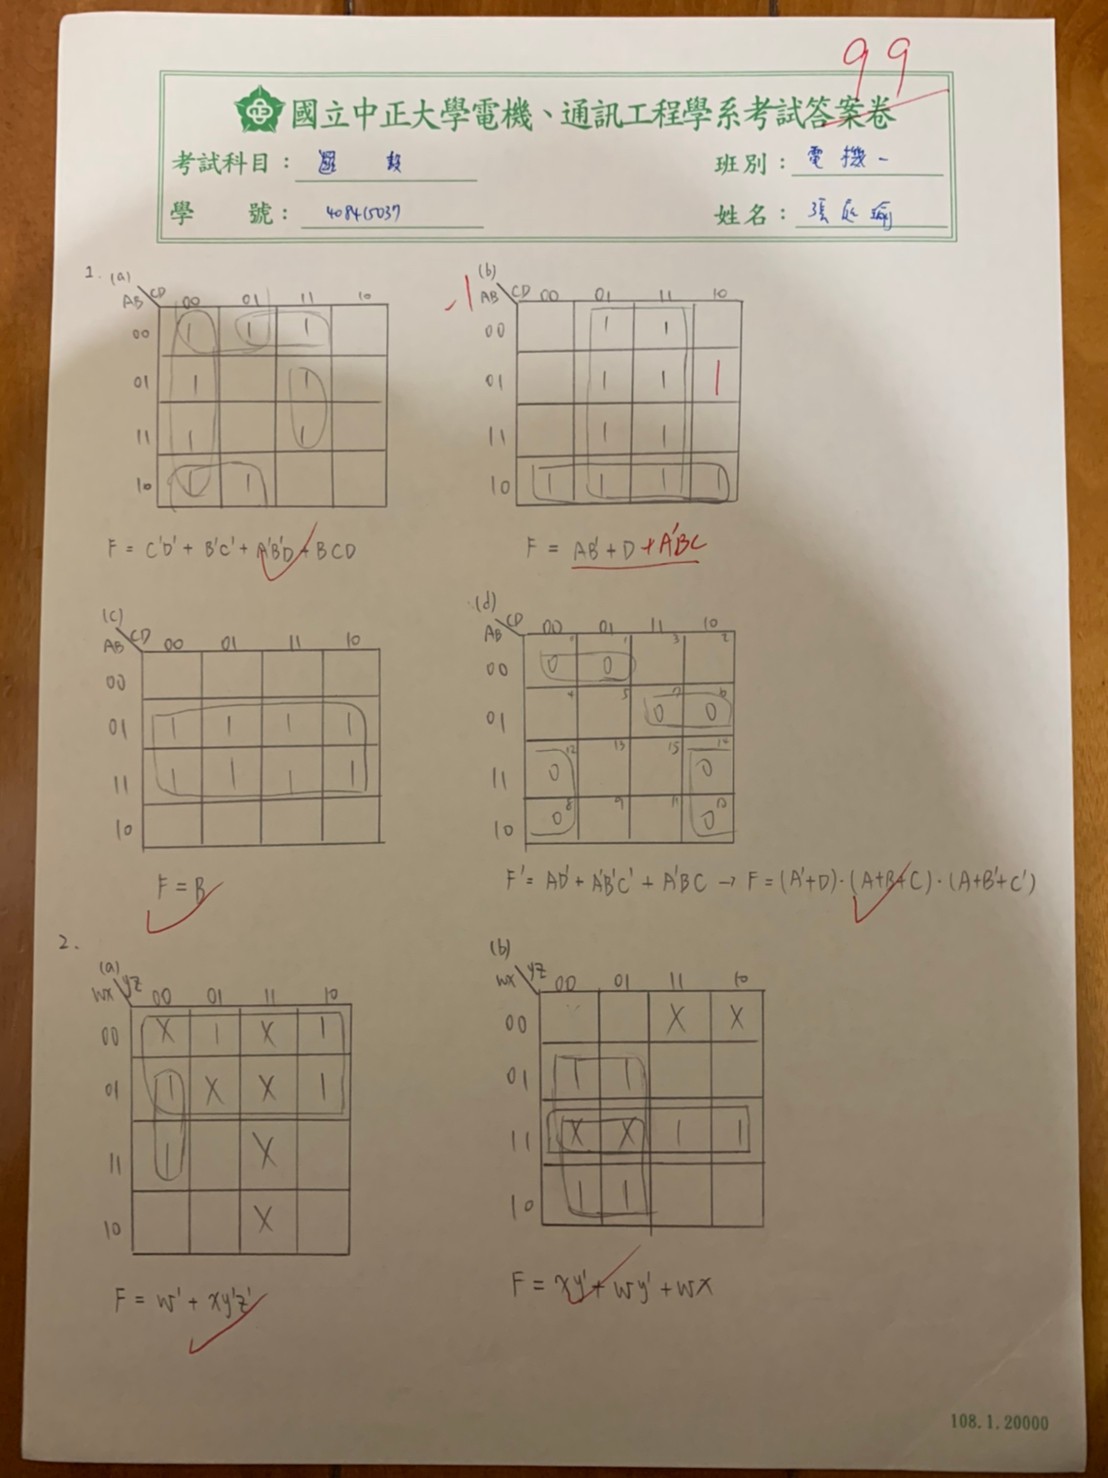 99
國立中正大學電機、通訊工程學系考試答案卷
考試科目：邏 設 班別：電機一
學 號：408415037 姓名：張
1. (a)
AB CD 00 01 11 10
00 1 1 1
01 1 1
11 1 1
10 1 1
F = C'D' + B'C' + A'B'D + BCD
-1 (b)
AB CD 00 01 11 10
00 1 1
01 1 1 1
11 1 1
10 1 1 1 1
F = AB' + D + A'BC
(c)
AB CD 00 01 11 10
00
01 1 1 1 1
11 1 1 1 1
10
F = B
(d)
AB CD 00 01 11 10
00 0 1 0 1 3 2
01 4 5 0 7 0 6
11 0 12 13 15 0 14
10 0 8 9 11 0 10
F' = AD' + A'B'C' + A'BC → F = (A'+D)·(A+B+C)·(A+B'+C')
2.
(a)
wx yz 00 01 11 10
00 X 1 X 1
01 1 X X 1
11 1 X
10 X
F = w' + xy'z'
(b)
wx yz 00 01 11 10
00 X X
01 1 1
11 X X 1 1
10 1 1
F = xy' + wy' + wx
108.1.20000